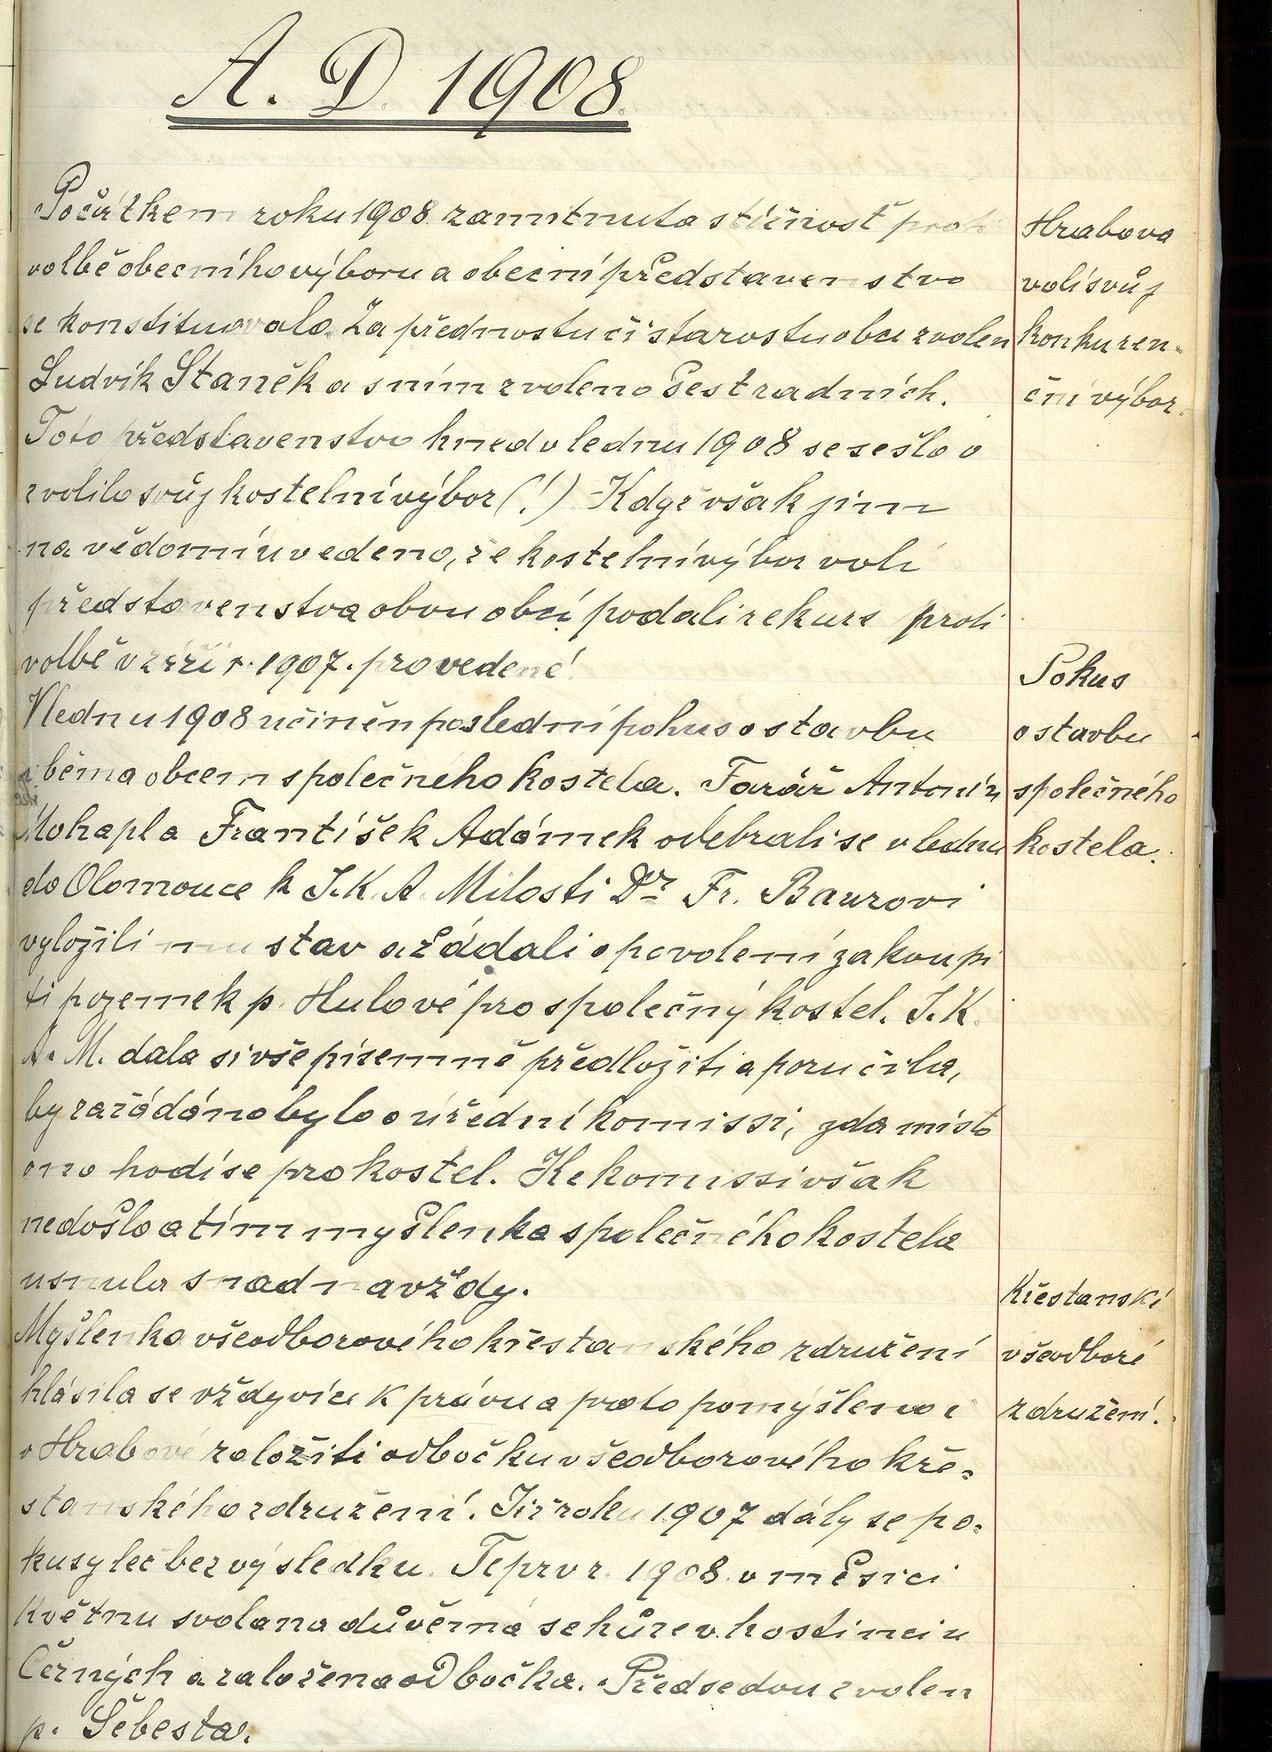 A. D. 1908.
Počátkem roku 1908 zamítnuta stížnost proti
volbě obecního výboru a obecní představenstvo
se konstituovalo. Za přednostu či starostu obce zvolen
Ludvík Staněk a s ním zvoleno šest radních.
Toto představenstvo hned v lednu 1908 se sešlo a
zvolilo svůj kostelní výbor (!) Když však jim
na vědomí uvedeno, že kostelní výbor volí
představenstva obou obcí podali rekurs proti
volbě v září r. 1907. provedené!
V lednu 1908 učiněn poslední pokus o stavbu
oběma obcem společného kostela. Farář Antonín
Mohapl a František Adámek odebrali se v lednu
do Olomouce k J. K. A. Milosti Dr. Fr. Baurovi
vyložili mu stav a žádali o povolení zakoupi
ti pozemek p. Hulové pro společný kostel. J. K.
A. M. dala si vše písemně předložiti a poručila,
by zažádáno bylo o úřední komissi, zda místo
ono hodí se pro kostel. Ke komissi však
nedošlo a tím myšlenka společného kostela
usnula snad navždy.
Myšlenka všeodborového křestanského združení
hlásila se vždy více k právu a proto pomýšleno i
v Hrabové založiti odbočku všeodborového kře-
stanského združení. Již roku 1907 dály se po-
kusy leč bez výsledku. Teprv r. 1908. v měsíci
květnu svolana důvěrná schůze v hostinci u
Černých a založena odbočka. Předsedou zvolen
p. Šebesta.
Hrabova
volí svůj
konkuren-
ční výbor.
Pokus
o stavbu
společného
kostela.
Křestanské
všeodboré
združení.